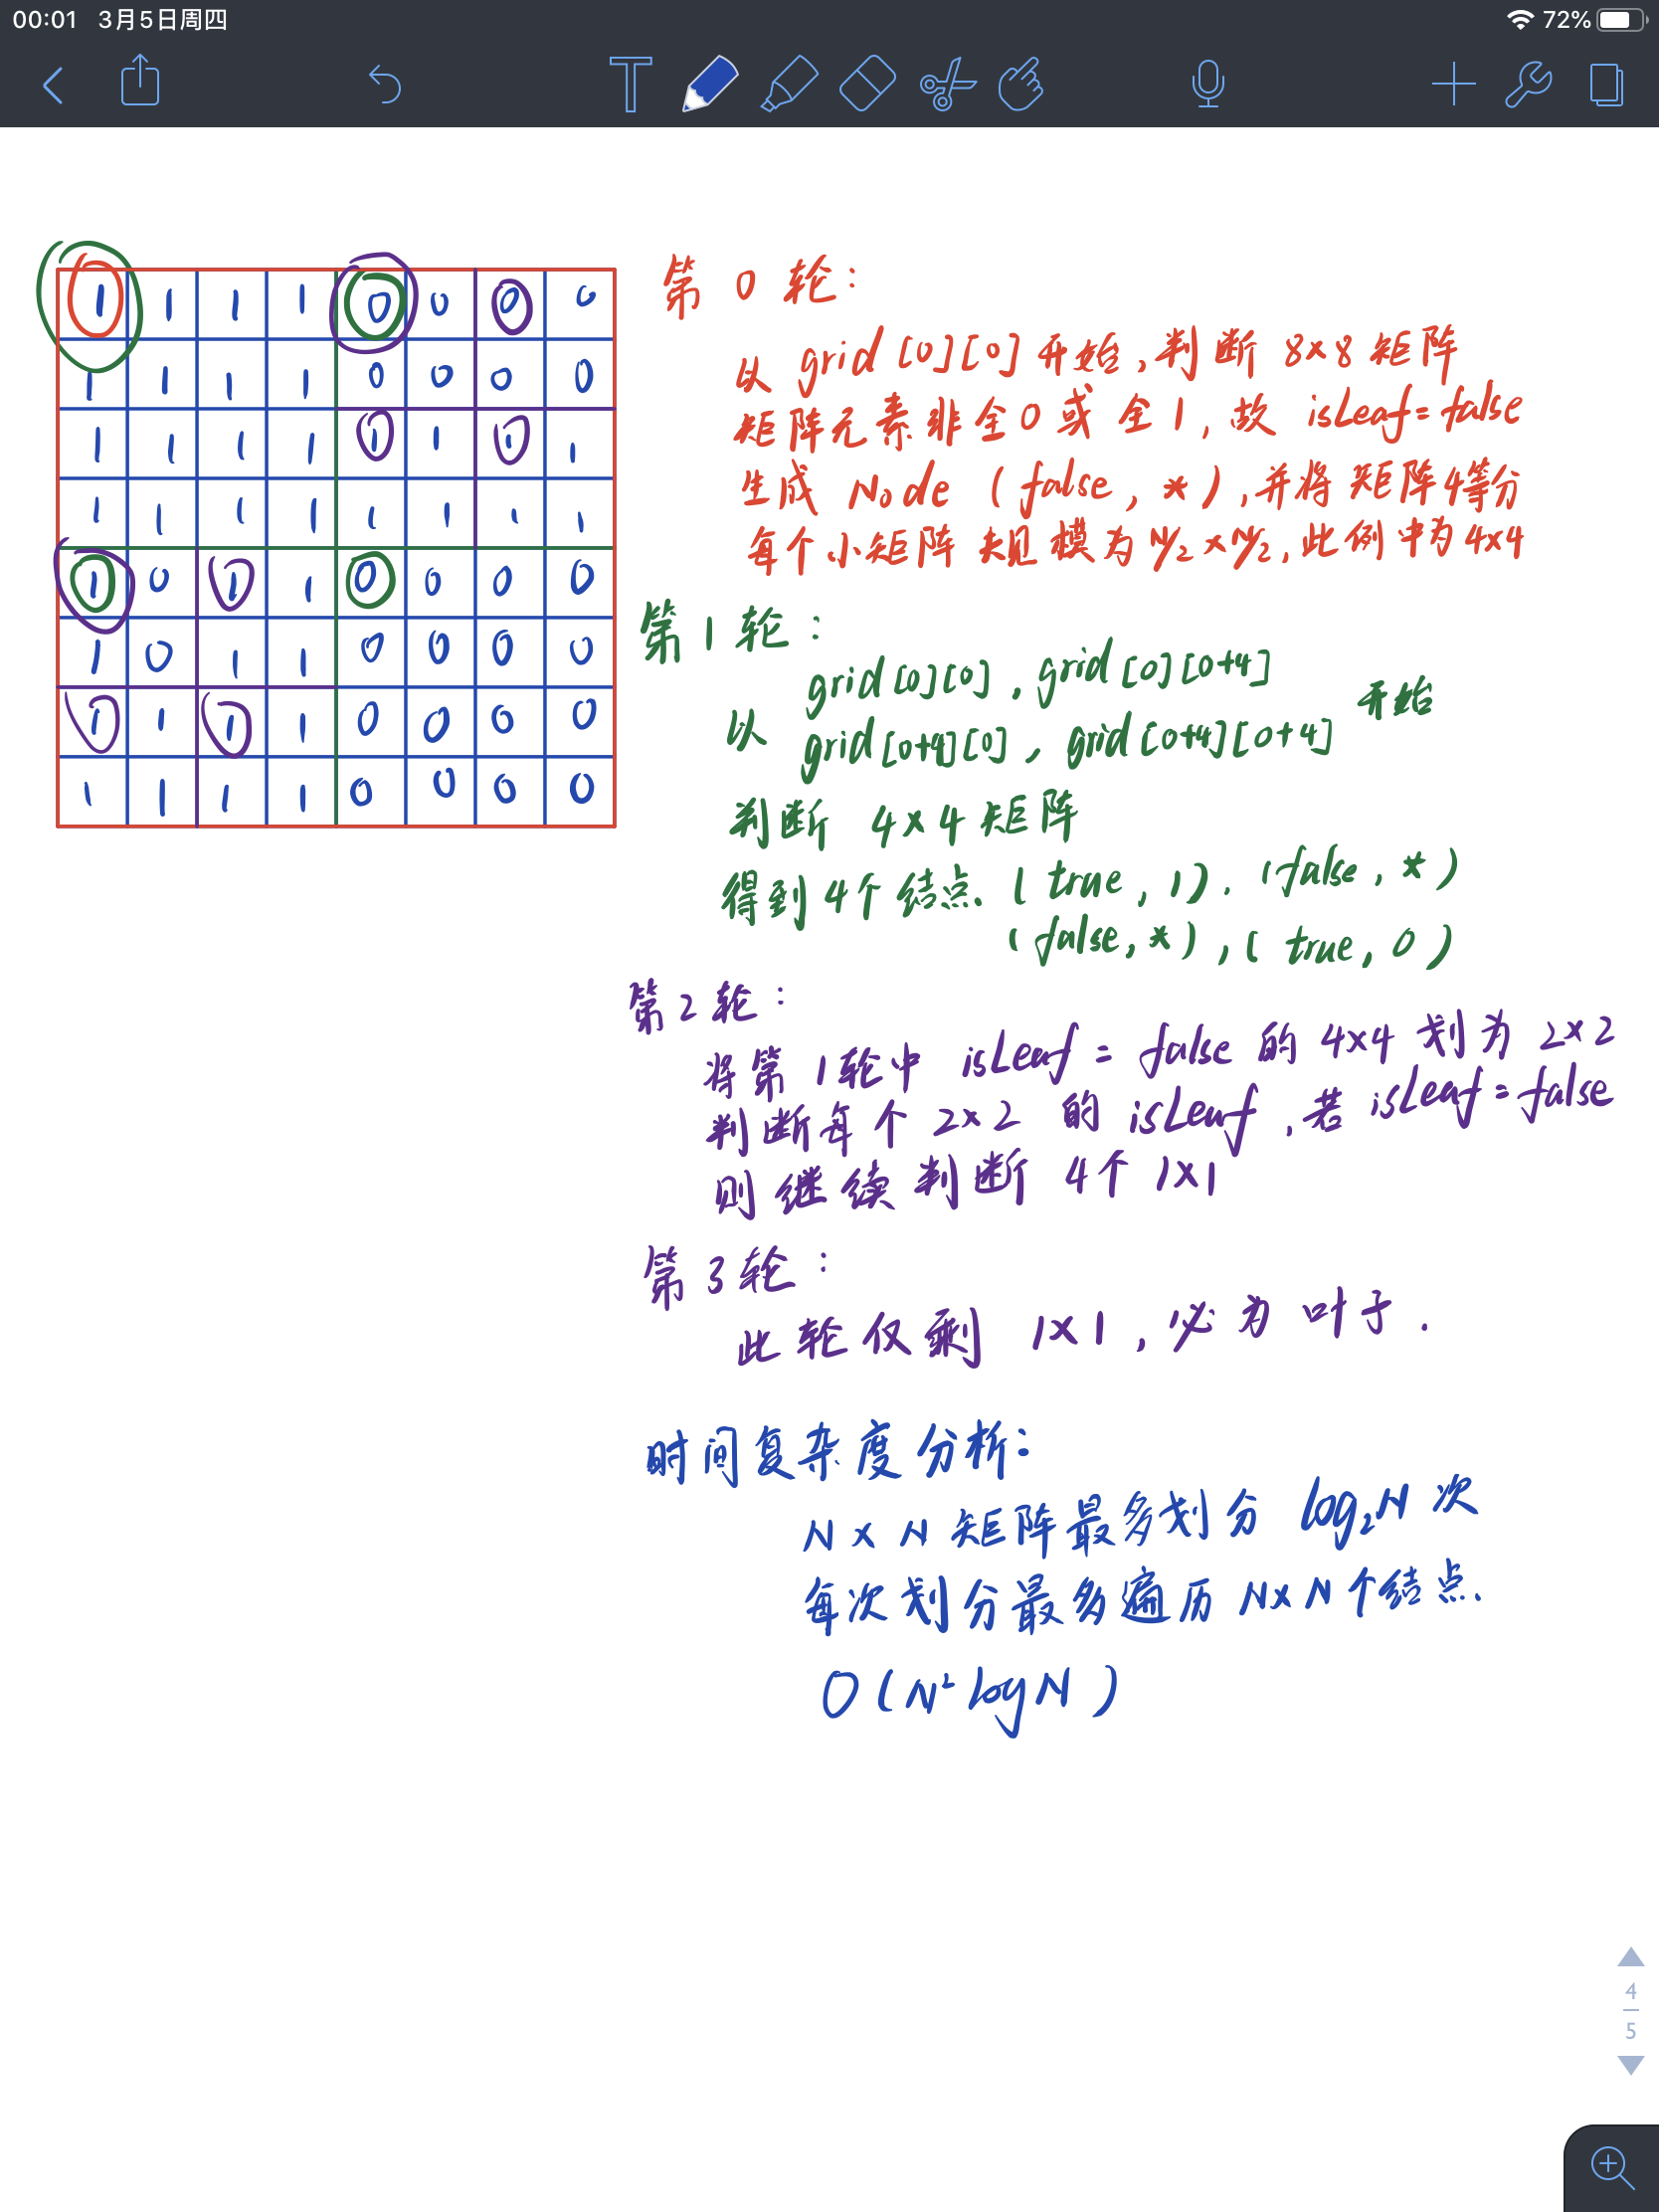 00:01 3月5日周四
72%
T
1 1 1 1 0 0 0 0
1 1 1 1 0 0 0 0
1 1 1 1 1 1 1 1
1 1 1 1 1 1 1 1
1 0 1 1 0 0 0 0
1 0 1 1 0 0 0 0
1 1 1 1 0 0 0 0
1 1 1 1 0 0 0 0
第0轮:
以 grid[0][0]开始,判断 8×8 矩阵
矩阵元素非全0或全1,故 isLeaf=false
生成 Node (false, *),并将矩阵4等分
每个小矩阵规模为N/2×N/2,此例中为4×4
第1轮:
grid[0][0], grid[0][0+4]
以 开始
grid[0+4][0], grid[0+4][0+4]
判断 4×4矩阵
得到4个结点. (true, 1). (false, *)
(false, *), (true, 0)
第2轮:
将第1轮中 isLeaf = false 的 4×4 划为 2×2
判断每个 2×2 的 isLeaf,若 isLeaf=false
则继续判断 4个 1×1
第3轮:
此轮仅剩 1×1,必为叶子.
时间复杂度分析:
N×N矩阵最多划分 log₂N 次
每次划分最多遍历 N×N个结点.
O(N²logN)
4
5